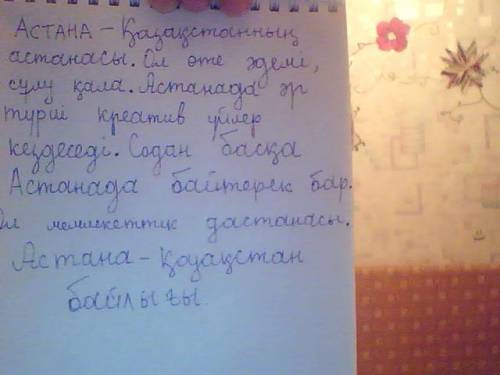 Астана – Қазақстанның
астанасы. Ол өте әдемі,
сұлу қала. Астанада әр
түрлі креатив үйлер
кездеседі. Содан басқа
Астанада байтерек бар.
Ол мемлекеттік дастанасы.
Астана – Қазақстан
байлығы